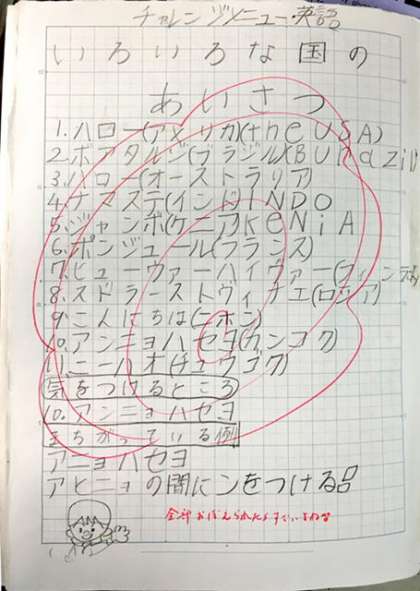 チャレンジメニュー・英語
いろいろな国の
あいさつ
1.ハロー(アメリカ)(the USA)
2.ボアタルジ(ブラジル)(Burazil)
3.ハロー(オーストラリア)
4.ナマステ(インド)INDO
5.ジャンボ(ケニア)KeNiA
6.ボンジュール(フランス)
7.ヒューヴァーハイヴァー(フィン
8.ズドラーストヴィチェ(ロシア)
9.こんにちは(ニホン)
10.アンニョハセヨ(カンコク)
11.ニーハオ(チュウゴク)
気をつけるところ
10.アンニョハセヨ
まちがっている例
アニョハセヨ
アとニョの間にンをつける
全部おぼえられたら